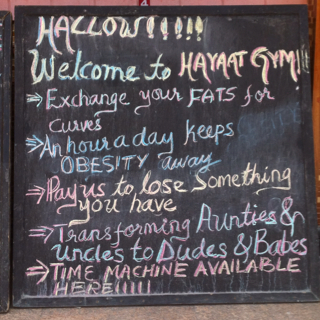 HALLOW!!!!!
Welcome to HAYAAT GYM!!!
⇒ Exchange your FATS for
curves
⇒ An hour a day keeps
OBESITY away
⇒ Pay us to lose Something
you have
⇒ Transforming Aunties &
Uncles to Dudes & Babes
⇒ TIME MACHINE AVAILABLE
HERE!!!!!